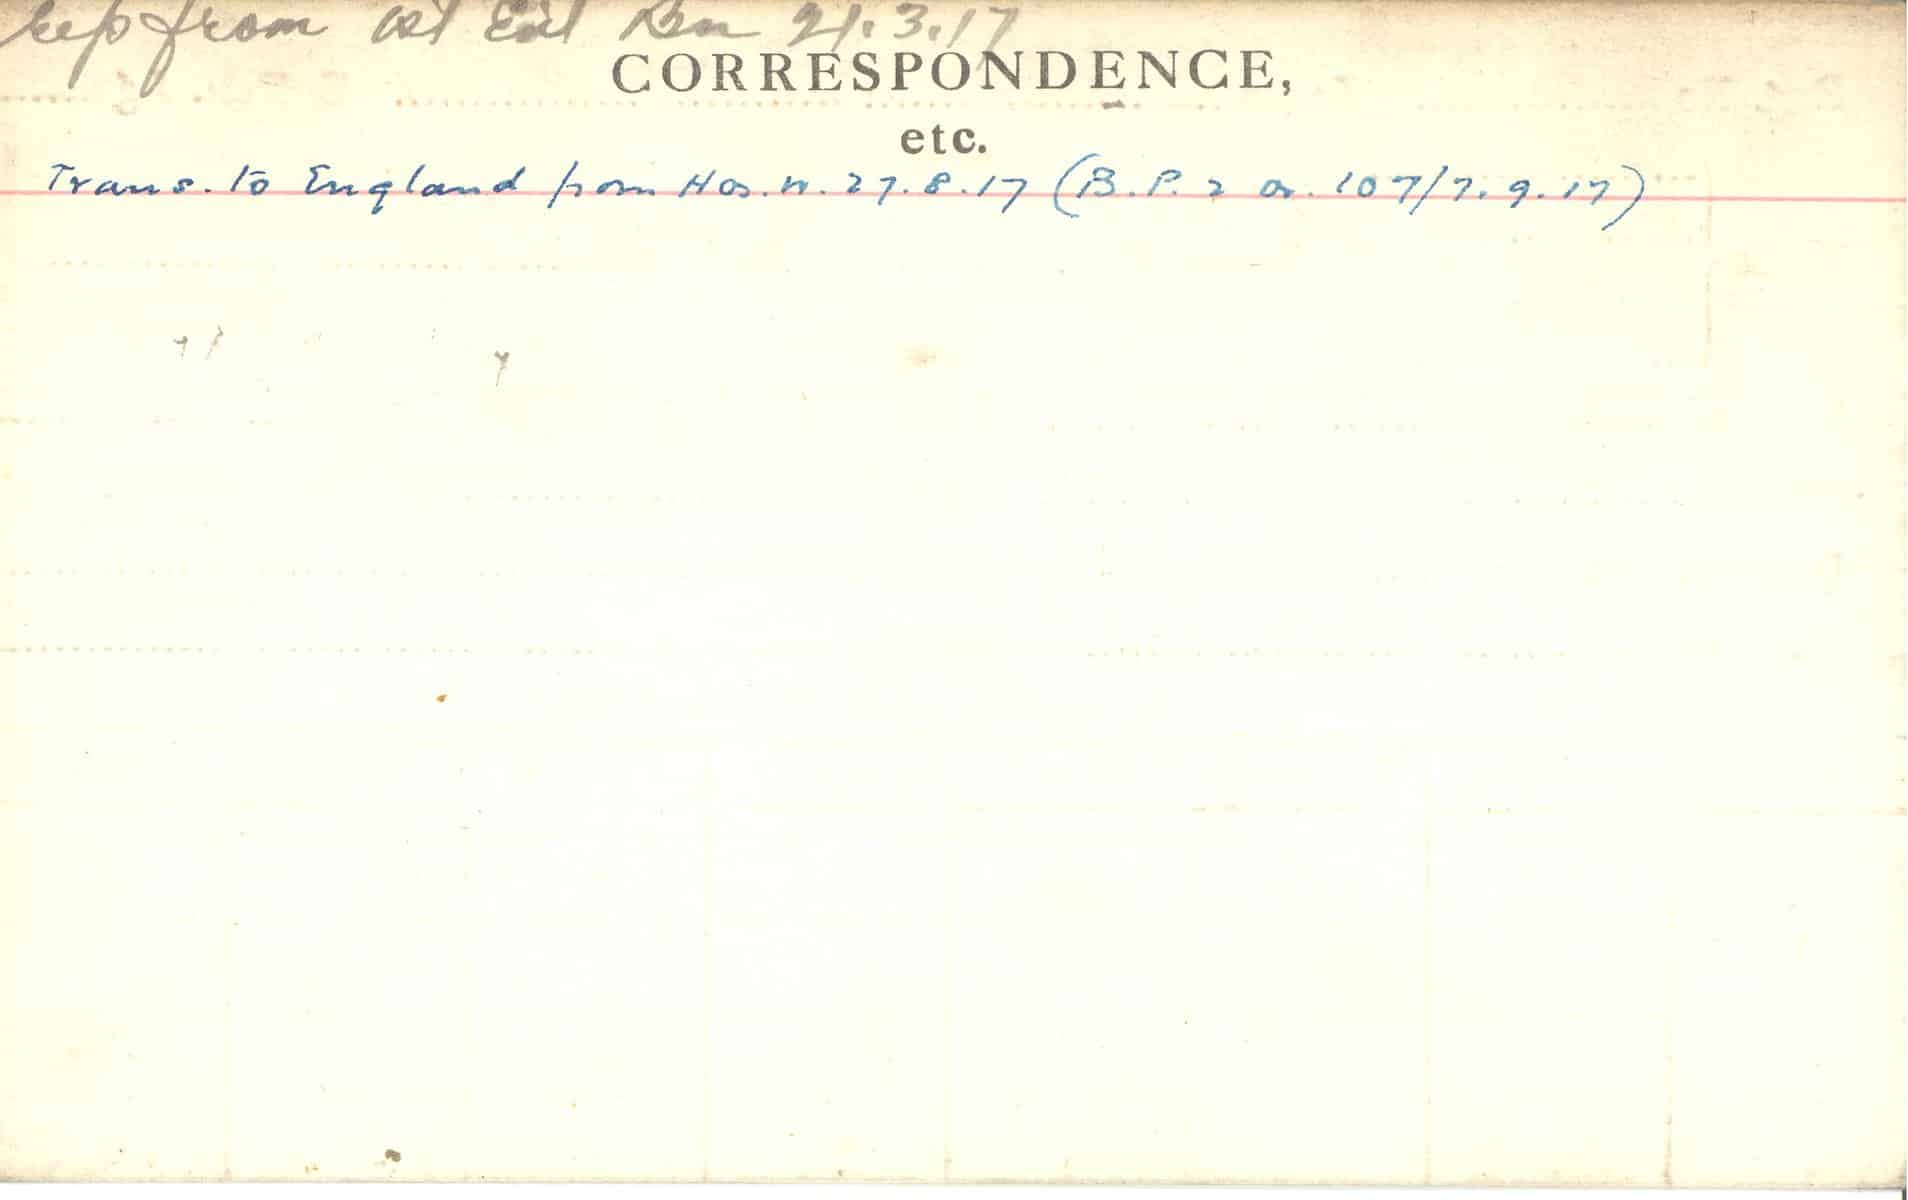 from Est Bn 21.3.17
CORRESPONDENCE,
etc.
Trans. to England from Hos. n. 27.8.17 (B.P. 2 or. 107/7.9.17)